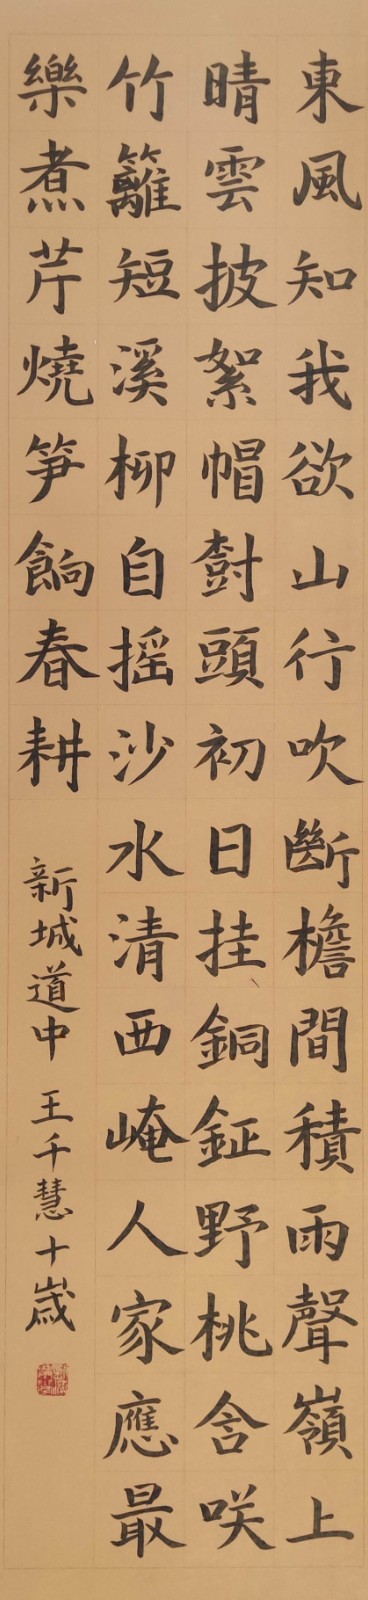 東風知我欲山行吹斷檐間積雨聲嶺上
晴雲披絮帽樹頭初日挂銅鉦野桃含咲
竹籬短溪柳自摇沙水清西崦人家應最
樂煮芹燒笋餉春耕
新城道中 王千慧十歲